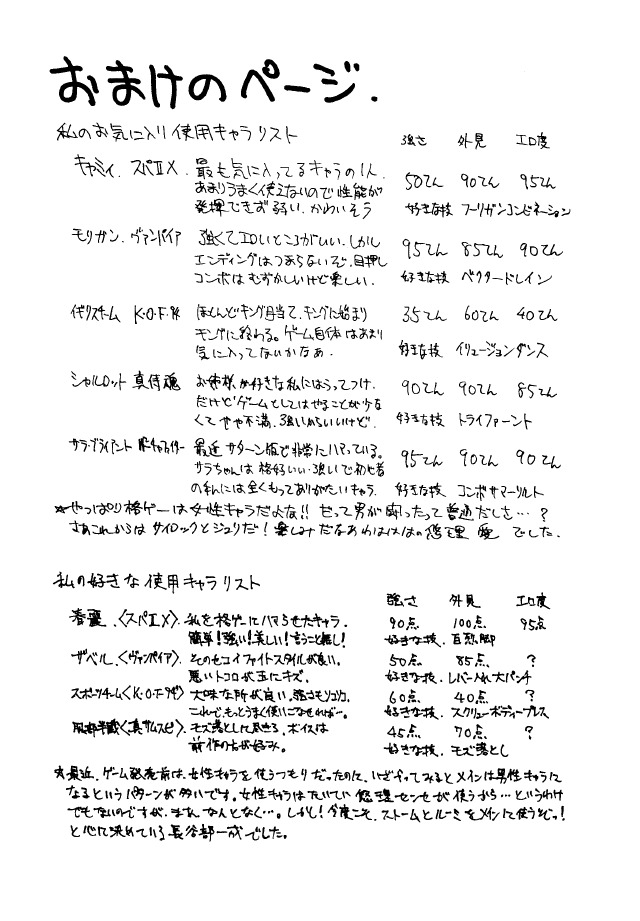 おまけのページ.
私のお気に入り使用キャラリスト 強さ 外見 エロ度
キャミィ. スパⅡX. 最も気に入ってるキャラの1人
あまりうまく使えないので性能が 50てん 90てん 95てん
発揮できず弱い. かわいそう 好きな技 フーリガンコンビネーション
モリガン. ヴァンパイア 強くてエロいところがいい. しかし 95てん 85てん 90てん
エンディングはつまらないぞ. 目押し
コンボはむずかしいけど楽しい. 好きな技 ベクタードレイン
イギリスチーム K・O・F' ほとんどキング目当て. キングに始まり 35てん 60てん 40てん
キングに終わる。ゲーム自体はあまり
気に入ってないかなぁ. 好きな技 イリュージョンダンス
シャルロット 真侍魂 お姉様が好きな私にはうってつけ. 90てん 90てん 85てん
だけどゲームとしてはやることが少な
くてやや不満. 強いからいいけど. 好きな技 トライファーント
サラ・ブライアント 最近サターン版で非常にハマっている。 95てん 90てん 90てん
サラちゃんは格好いい・強いで初心者
の私には全くもってありがたいキャラ. 好きな技 コンボサマーソルト
☆やっぱり格ゲーは女性キャラだよな!! だって男が闘ったって普通だしさ…?
さあこれからはサイロックとジュリだ! 楽しみだなあわはははの悠理 愛 でした.
私の好きな使用キャラリスト 強さ 外見 エロ度
春麗.〈スパⅡX〉. 私を格ゲーにハマらせたキャラ. 90点 100点 95点
簡単!強い!美しい!言うこと無し! 好きな技. 百烈脚
ザベル.〈ヴァンパイア〉 そのセコイファイトスタイルが良い. 50点 85点. ?
悪いトコロが玉にキズ. 好きな技. レバー入れ大パンチ
スポーツチーム〈K・O・F'〉 大味な所が良い. 強さもソコソコ. 60点 40点 ?
これで、もっとうまく使いこなせれば…. 好きな技. スクリューボディープレス
服部半蔵〈真サムスピ〉. モズ落としで生きる. ボイスは 45点 70点. ?
前作の方が好み。 好きな技. モズ落とし
☆最近、ゲーム発売前は、女性キャラを使うつもりだったのに、いざやってみるとメインは男性キャラに
なるというパターンが多いです。女性キャラはたいてい悠理センセが使うから…というわけ
でもないのですが、まぁ、なんとなく…。しかし!今度こそ、ストームとルーミをメインに使うぞっ!
と心に決めている長谷部一成でした。